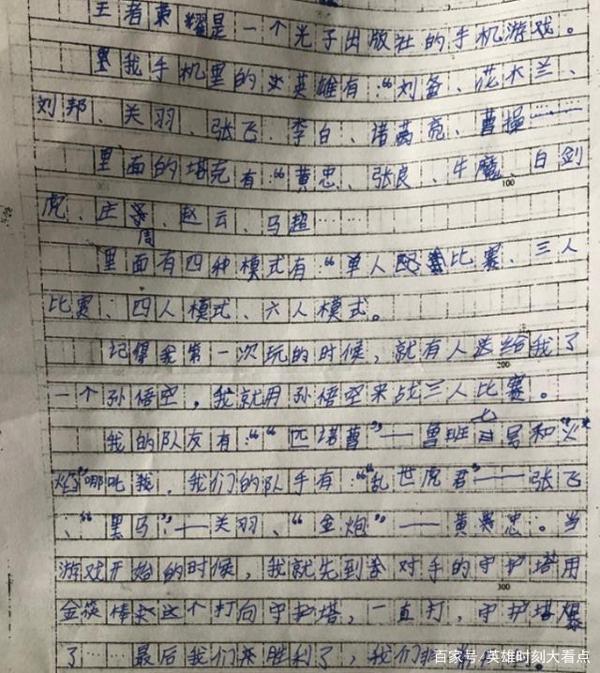 王者荣耀是一个光子出版社的手机游戏。
我手机里的英雄有："刘备、花木兰、
刘邦、关羽、张飞、李白、诸葛亮、曹操……
里面的坦克有："黄忠、张良、牛魔、白剑
虎、庄周、赵云、马超……
里面有四种模式有："单人比赛、三人
比赛、四人模式、六人模式。
记得第一次玩的时候，就有人送给我了
一个孙悟空，我就用孙悟空来战三人比赛。
我的队友有："匹诺曹"——鲁班七号和"火
焰"哪吒我，我们的队手有："乱世虎君"——张飞
、"黑马"——关羽、"金炮"——黄忠。当
游戏开始的时候，我就先到对手的守护塔用
金箍棒这个打向守护塔，一直打，守护塔爆
了……最后我们胜利了，我们非
100
200
300
百家号/英雄时刻大看点